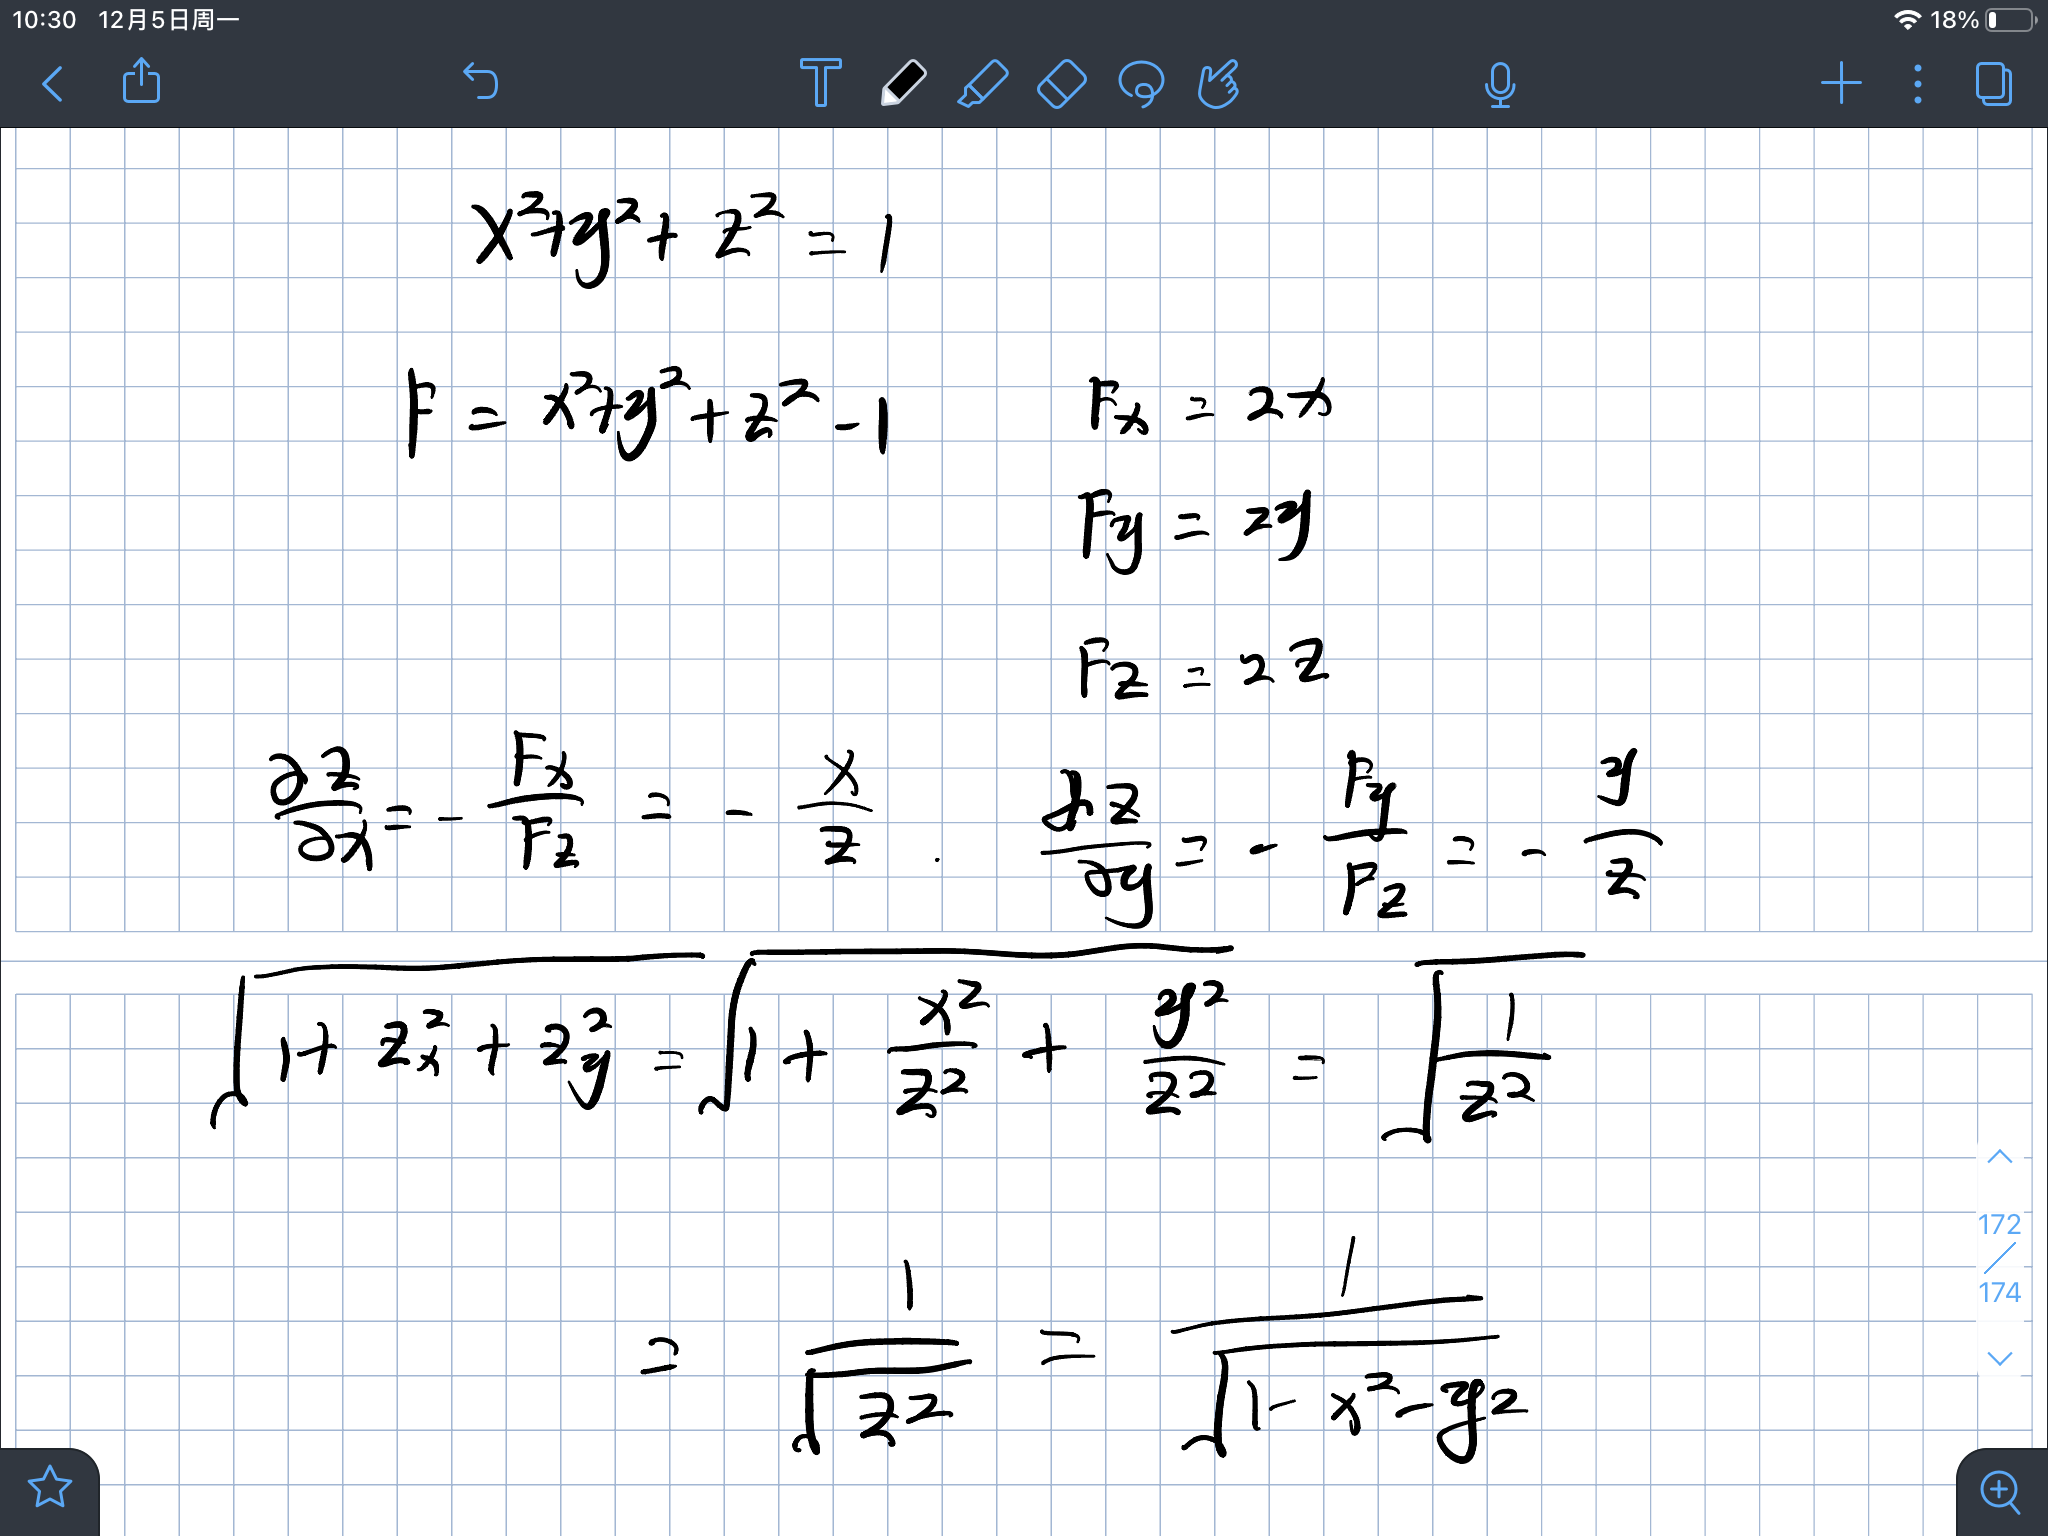 10:30 12月5日周一 18%
x²+y²+z²=1
F = x²+y²+z²-1
Fx = 2x
Fy = 2y
Fz = 2z
∂z/∂x = - Fx/Fz = - x/z . ∂z/∂y = - Fy/Fz = - y/z
√(1+zx²+zy²) = √(1+x²/z²+y²/z²) = √(1/z²)
= 1/√(z²) = 1/√(1-x²-y²)
172
/
174